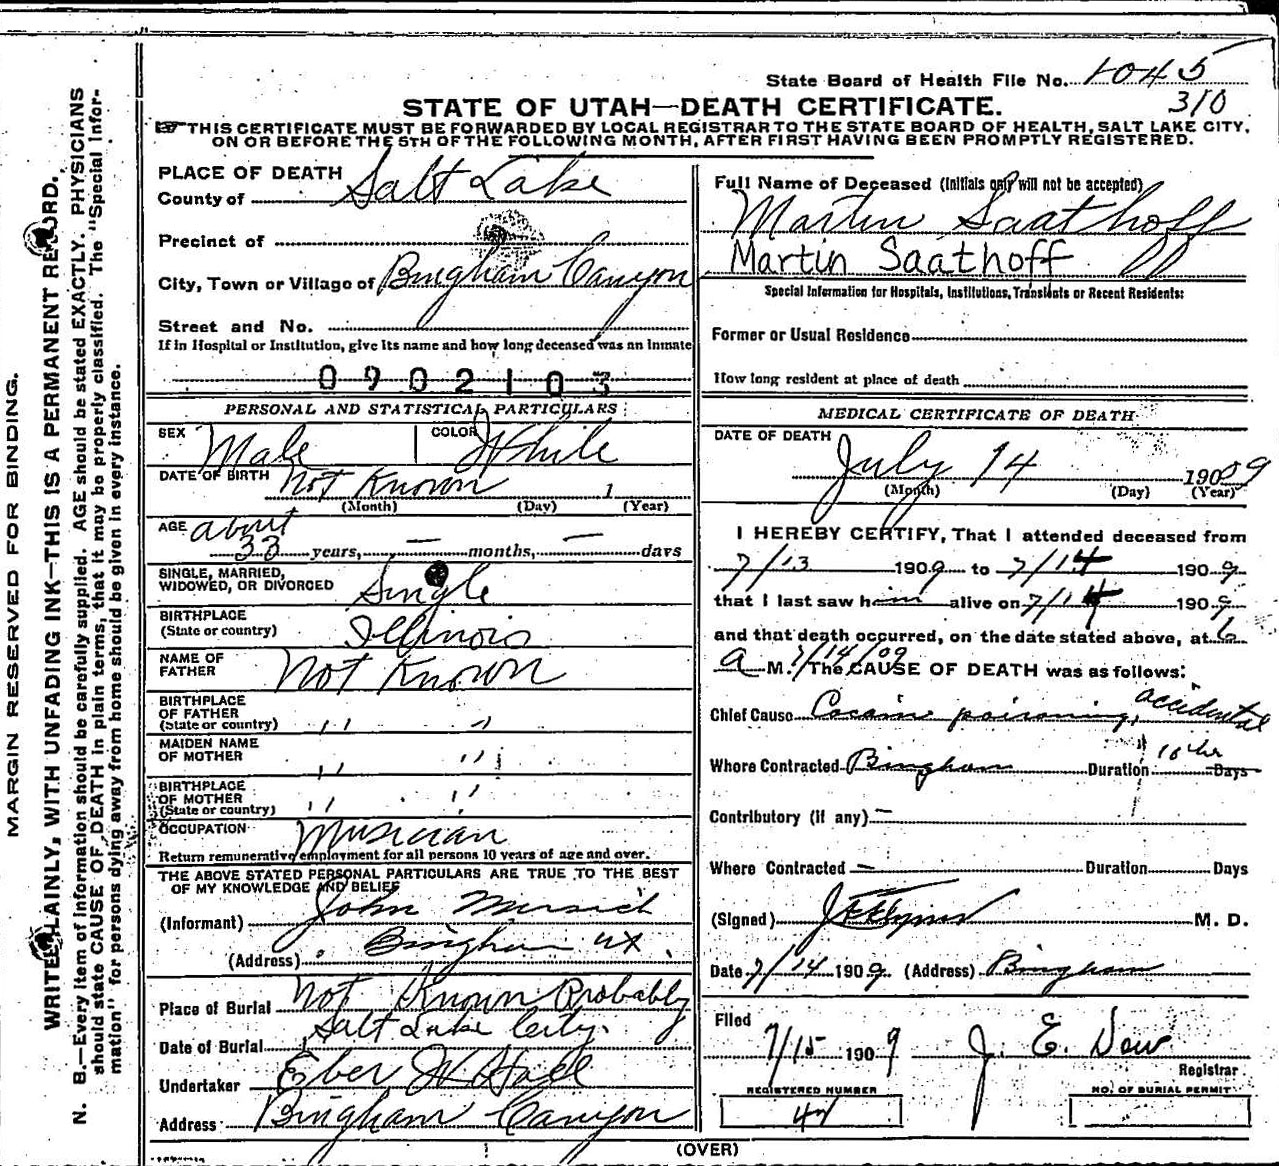 State Board of Health File No. 1045
310
STATE OF UTAH—DEATH CERTIFICATE.
☞ THIS CERTIFICATE MUST BE FORWARDED BY LOCAL REGISTRAR TO THE STATE BOARD OF HEALTH, SALT LAKE CITY,
ON OR BEFORE THE 5TH OF THE FOLLOWING MONTH, AFTER FIRST HAVING BEEN PROMPTLY REGISTERED.
MARGIN RESERVED FOR BINDING.
WRITE PLAINLY, WITH UNFADING INK—THIS IS A PERMANENT RECORD.
N. B.—Every item of information should be carefully supplied. AGE should be stated EXACTLY. PHYSICIANS
should state CAUSE OF DEATH in plain terms, that it may be properly classified. The "Special Infor-
mation" for persons dying away from home should be given in every instance.
PLACE OF DEATH
County of Salt Lake
Precinct of
City, Town or Village of Bingham Canyon
Street and No.
If in Hospital or Institution, give its name and how long deceased was an inmate
0902103
PERSONAL AND STATISTICAL PARTICULARS
SEX Male COLOR White
DATE OF BIRTH Not Known 1
(Month) (Day) (Year)
AGE about
33 years, — months, — days
SINGLE, MARRIED,
WIDOWED, OR DIVORCED Single
BIRTHPLACE
(State or country) Illinois
NAME OF
FATHER Not Known
BIRTHPLACE
OF FATHER
(State or country) " "
MAIDEN NAME
OF MOTHER " "
BIRTHPLACE
OF MOTHER
(State or country) " "
OCCUPATION Musician
Return remunerative employment for all persons 10 years of age and over.
THE ABOVE STATED PERSONAL PARTICULARS ARE TRUE TO THE BEST
OF MY KNOWLEDGE AND BELIEF
(Informant) John
(Address) Bingham Ut
Place of Burial Not Known Probably
Salt Lake City.
Date of Burial
Undertaker Eber W Hall
Address Bingham Canyon
Full Name of Deceased (Initials only will not be accepted)
Martin Saathoff
Martin Saathoff
Special Information for Hospitals, Institutions, Transients or Recent Residents:
Former or Usual Residence
How long resident at place of death
MEDICAL CERTIFICATE OF DEATH
DATE OF DEATH
July 14 190 09
(Month) (Day) (Year)
I HEREBY CERTIFY, That I attended deceased from
7/13 1909 to 7/14 1909
that I last saw him alive on 7/14 1909
and that death occurred, on the date stated above, at 6
a M. 7/14/09 The CAUSE OF DEATH was as follows:
Chief Cause Cocain poisoning, accidental
Where Contracted Bingham Duration 10 hr Days
Contributory (if any) —
Where Contracted — Duration Days
(Signed) M. D.
Date 7/14 1909. (Address) Bingham
Filed
7/15 1909 J. E. Dow
Registrar
REGISTERED NUMBER NO. OF BURIAL PERMIT
(OVER)